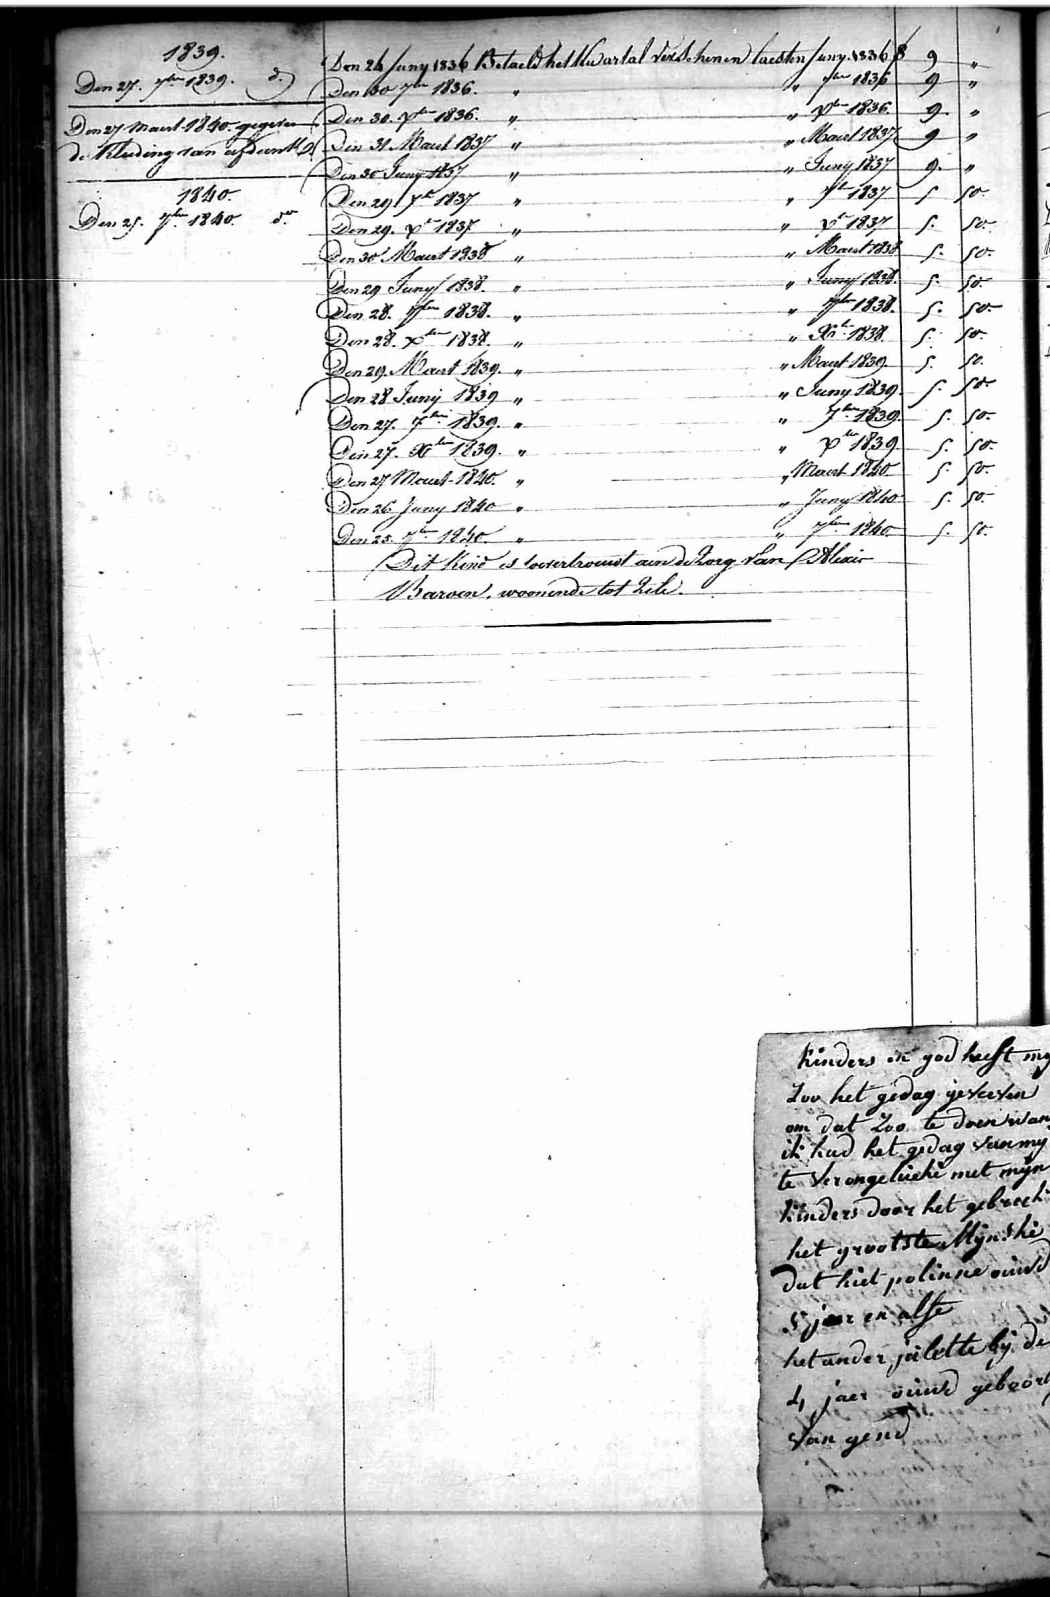 1839.
Den 27. 7ber 1839. d.
Den 27 Maert 1840. gegeven
de kleeding van
1840.
Den 25. 7ber 1840. do
Den 24 Juny 1836 Betaeld het Kwartal verschenen laesten Juny 1836 f 9 "
Den 30 7ber 1836. " " 7ber 1836 9 "
Den 30. Xber 1836. " " Xber 1836. 9. "
Den 31. Maert 1837 " " Maert 1837 9 "
Den 30 Juny 1837 " " Juny 1837 9. "
Den 29 7ber 1837 " " 7ber 1837 5. 50.
Den 29. Xber 1837. " " Xber 1837 5. 50.
Den 30 Maert 1938 " " Maert 1838 5. 50.
Den 29 Juny 1838. " " Juny 1838. 5. 50
Den 28. 7ber 1838. " " 7ber 1838. 5. 50.
Den 28. Xber 1838. " " Xber 1838. 5. 50.
Den 29. Maert 1839. " " Maert 1839. 5. 50.
Den 28 Junij 1839 " " Juny 1839. 5. 50
Den 27. 7ber 1839. " " 7ber 1839. 5. 50.
Den 27. Xber 1839. " " Xber 1839. 5. 50.
Den 27 Maert 1840. " " Maert 1840 5. 50.
Den 26 Juny 1840 " " Juny 1840 5. 50.
Den 25. 7ber 1840. " " 7ber 1840. 5. 50.
Dit kind is toevertrouwt aen de Zorg van Alexis
Baroen, woonende tot Zele.
kinders en god heeft my
Zoo het gedag geveven
om dat Zoo te doen wan
ik had het gedag van my
te verongelucke met mijn
kinders door het gebreck
het grootste Mijnske
dat hiet polinne ouwd
5 jaer en alfe
het ander julette bij de
4 jaer ouwd geboort
Van gend